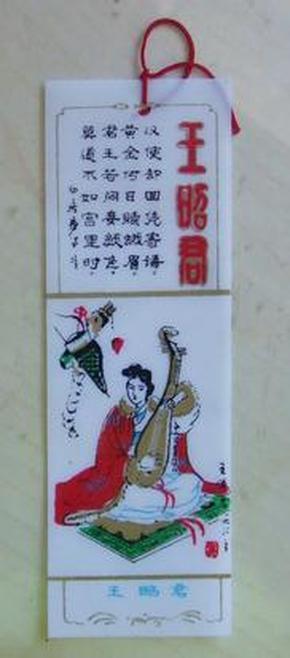 王昭君
汉使却回凭寄语
黄金何日赎蛾眉
君王若问妾颜色
莫道不如宫里时
王昭君